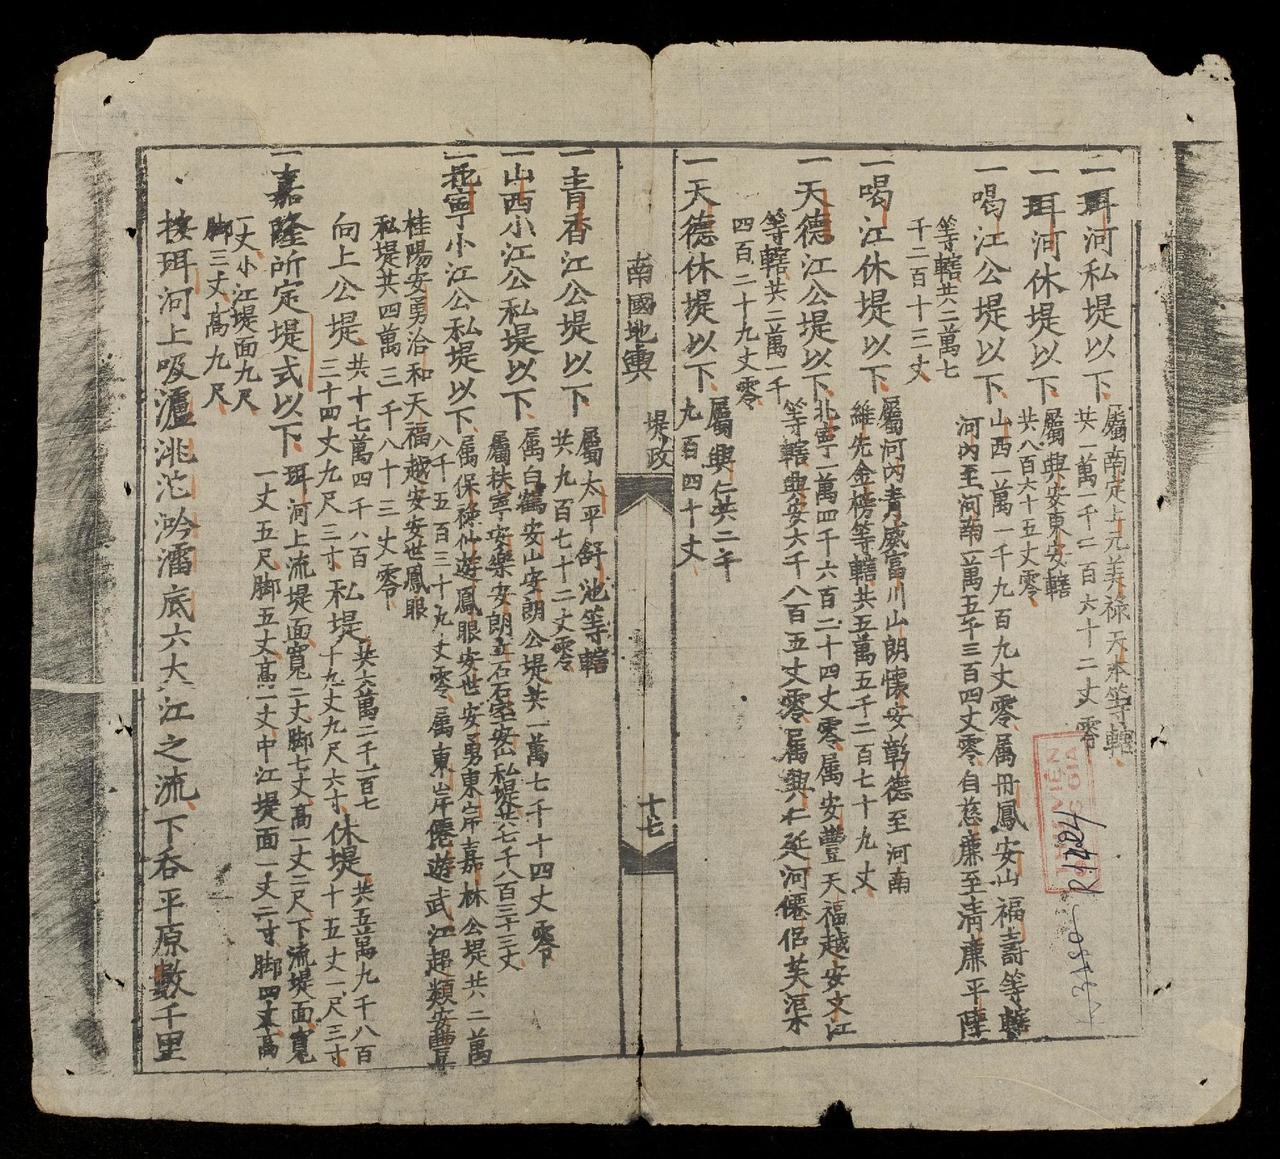 一珥河私堤以下
屬南定上元美祿天本等轄
共一萬一千二百六十二丈零
一珥河休堤以下
屬興安東安轄
共八百六十五丈零
一喝江公堤以下
山西一萬一千九百九丈零屬冊鳳安山福壽等轄
河內至河南一萬五千三百四丈零自慈廉至清廉平陸
等轄共二萬七
千二百十三丈
一喝江休堤以下
屬河內青威富川山朗懷安彰德至河南
維先金榜等轄共五萬五千二百七十九丈
一天德江公堤以下
北寧一萬四千六百二十四丈零屬安豐天福越安文江
等轄興安六千八百五丈零屬興仁延河僊侶芙渠
等轄共二萬一千
四百二十九丈零
一天德休堤以下
屬興仁共二千
九百四十丈
南國地輿
堤政
十七
一青香江公堤以下
屬太平舒池等轄
共九百七十二丈零
一山西小江公私堤以下
屬白鶴安山安朗公堤共一萬七千十四丈零
屬扶寧安樂安朗立石石室安山私堤共七千八百三十三丈
一北寧小江公私堤以下
屬保祿仙遊鳳眼安世安勇東岸嘉林公堤共二萬
八千五百三十九丈零屬東岸僊遊武江超類安豐
桂陽安勇洽和天福越安安世鳳眼
私堤共四萬三千八十三丈零
向上公堤
共十七萬四千八百
三十四丈九尺三寸
私堤
共六萬二千一百七
十九丈九尺六寸
休堤
共五萬九千八百
十五丈一尺三寸
一嘉隆所定堤式以下
珥河上流堤面寬二丈脚七丈高一丈二尺下流堤面寬
一丈五尺脚五丈高一丈中江堤面一丈二寸脚四丈高
一丈小江堤面九尺
脚三丈高九尺
按珥河上吸瀘洮沱泠濡底六大江之流下吞平原數千里
R.1724